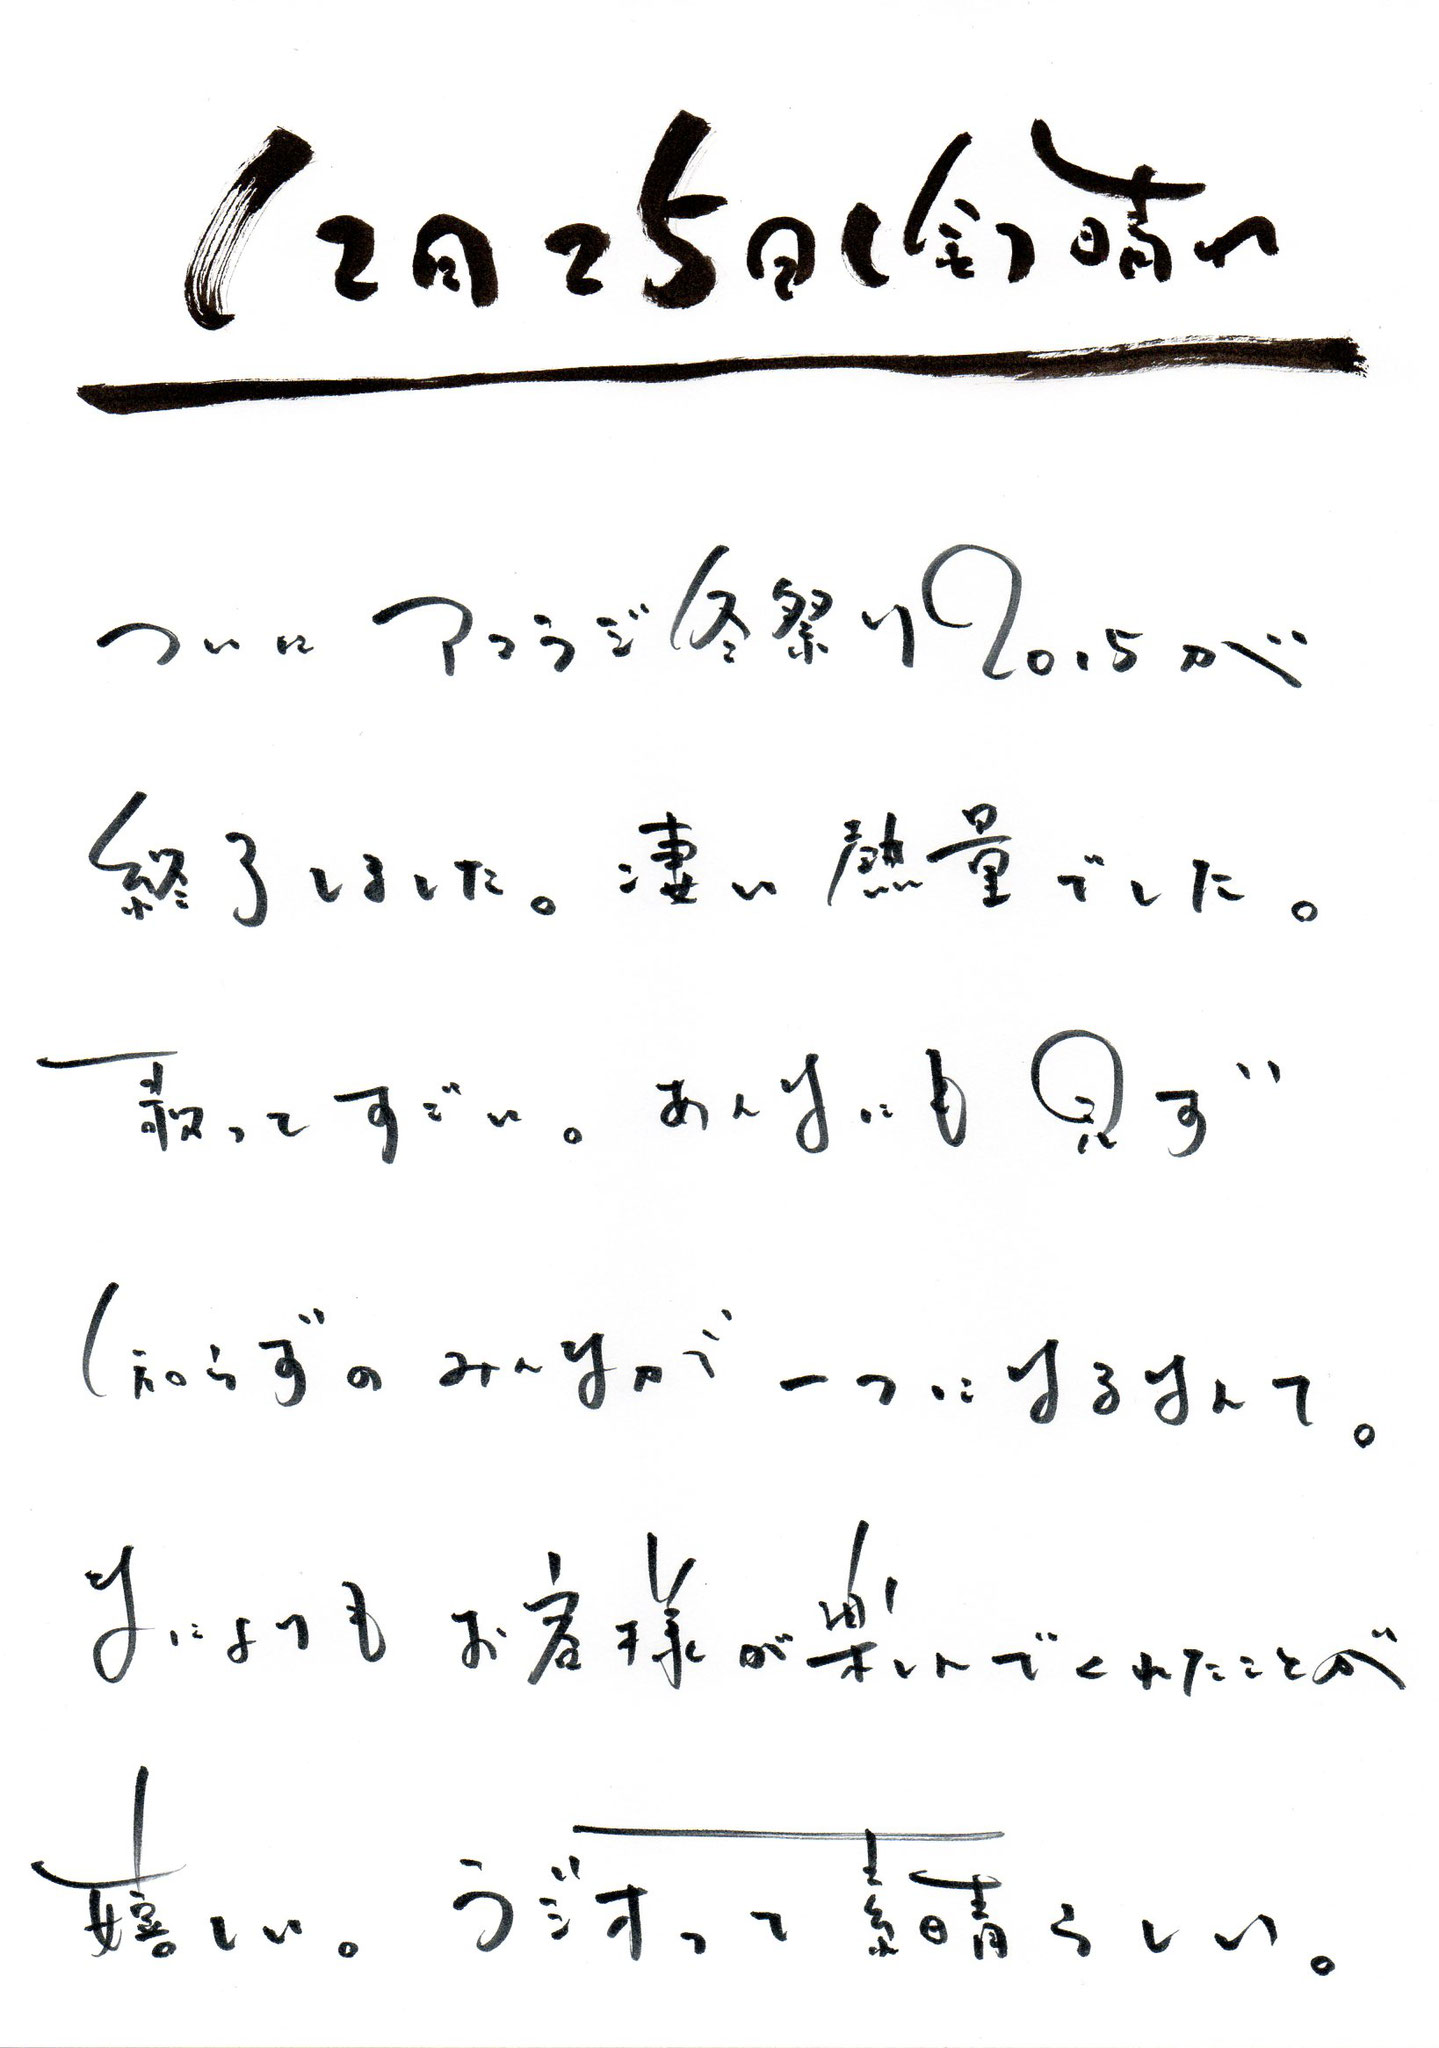 12月25日(金)晴れ
ついに アコラジ冬祭り2015が
終了しました。凄い熱量でした。
歌ってすごい。あんなにも見ず
知らずのみんなが一つになるなんて。
なによりもお客様が楽しんでくれたことが
嬉しい。ラジオって素晴らしい。